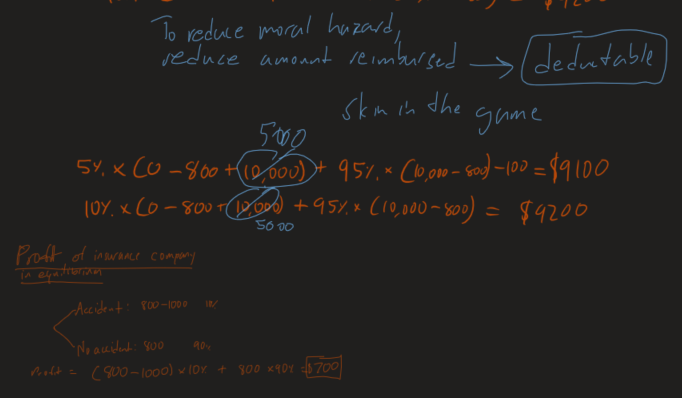 $9200
To reduce moral hazard,
reduce amount reimbursed → deductable
skin in the game
5000
5% × (0 - 800 + (10,000) + 95% × (10,000 - 800) - 100 = $9100
10% × (0 - 800 + 10,000) + 95% × (10,000 - 800) = $9200
5000
Profit of insurance company
in equilibrium
Accident: 800-1000
No accident: 800 90%
Profit = (800-1000) × 10% + 800 × 90% = $700